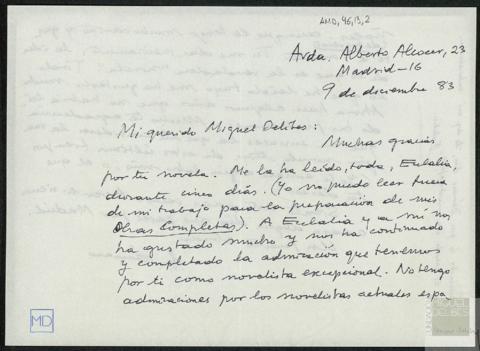 AMD, 45, 13, 2
Avda. Alberto Alcocer, 23
Madrid-16
9 de diciembre 83
Mi querido Miguel Delibes:
Muchas gracias
por tu novela. Me la ha leído, toda, Eulalia,
durante cinco días. (Yo no puedo leer fuera
de mi trabajo para la preparación de mis
Obras Completas). A Eulalia y a mí nos
ha gustado mucho y nos ha continuado
y completado la admiración que tenemos
por ti como novelista excepcional. No tengo
admiraciones por los novelistas actuales espa
MD